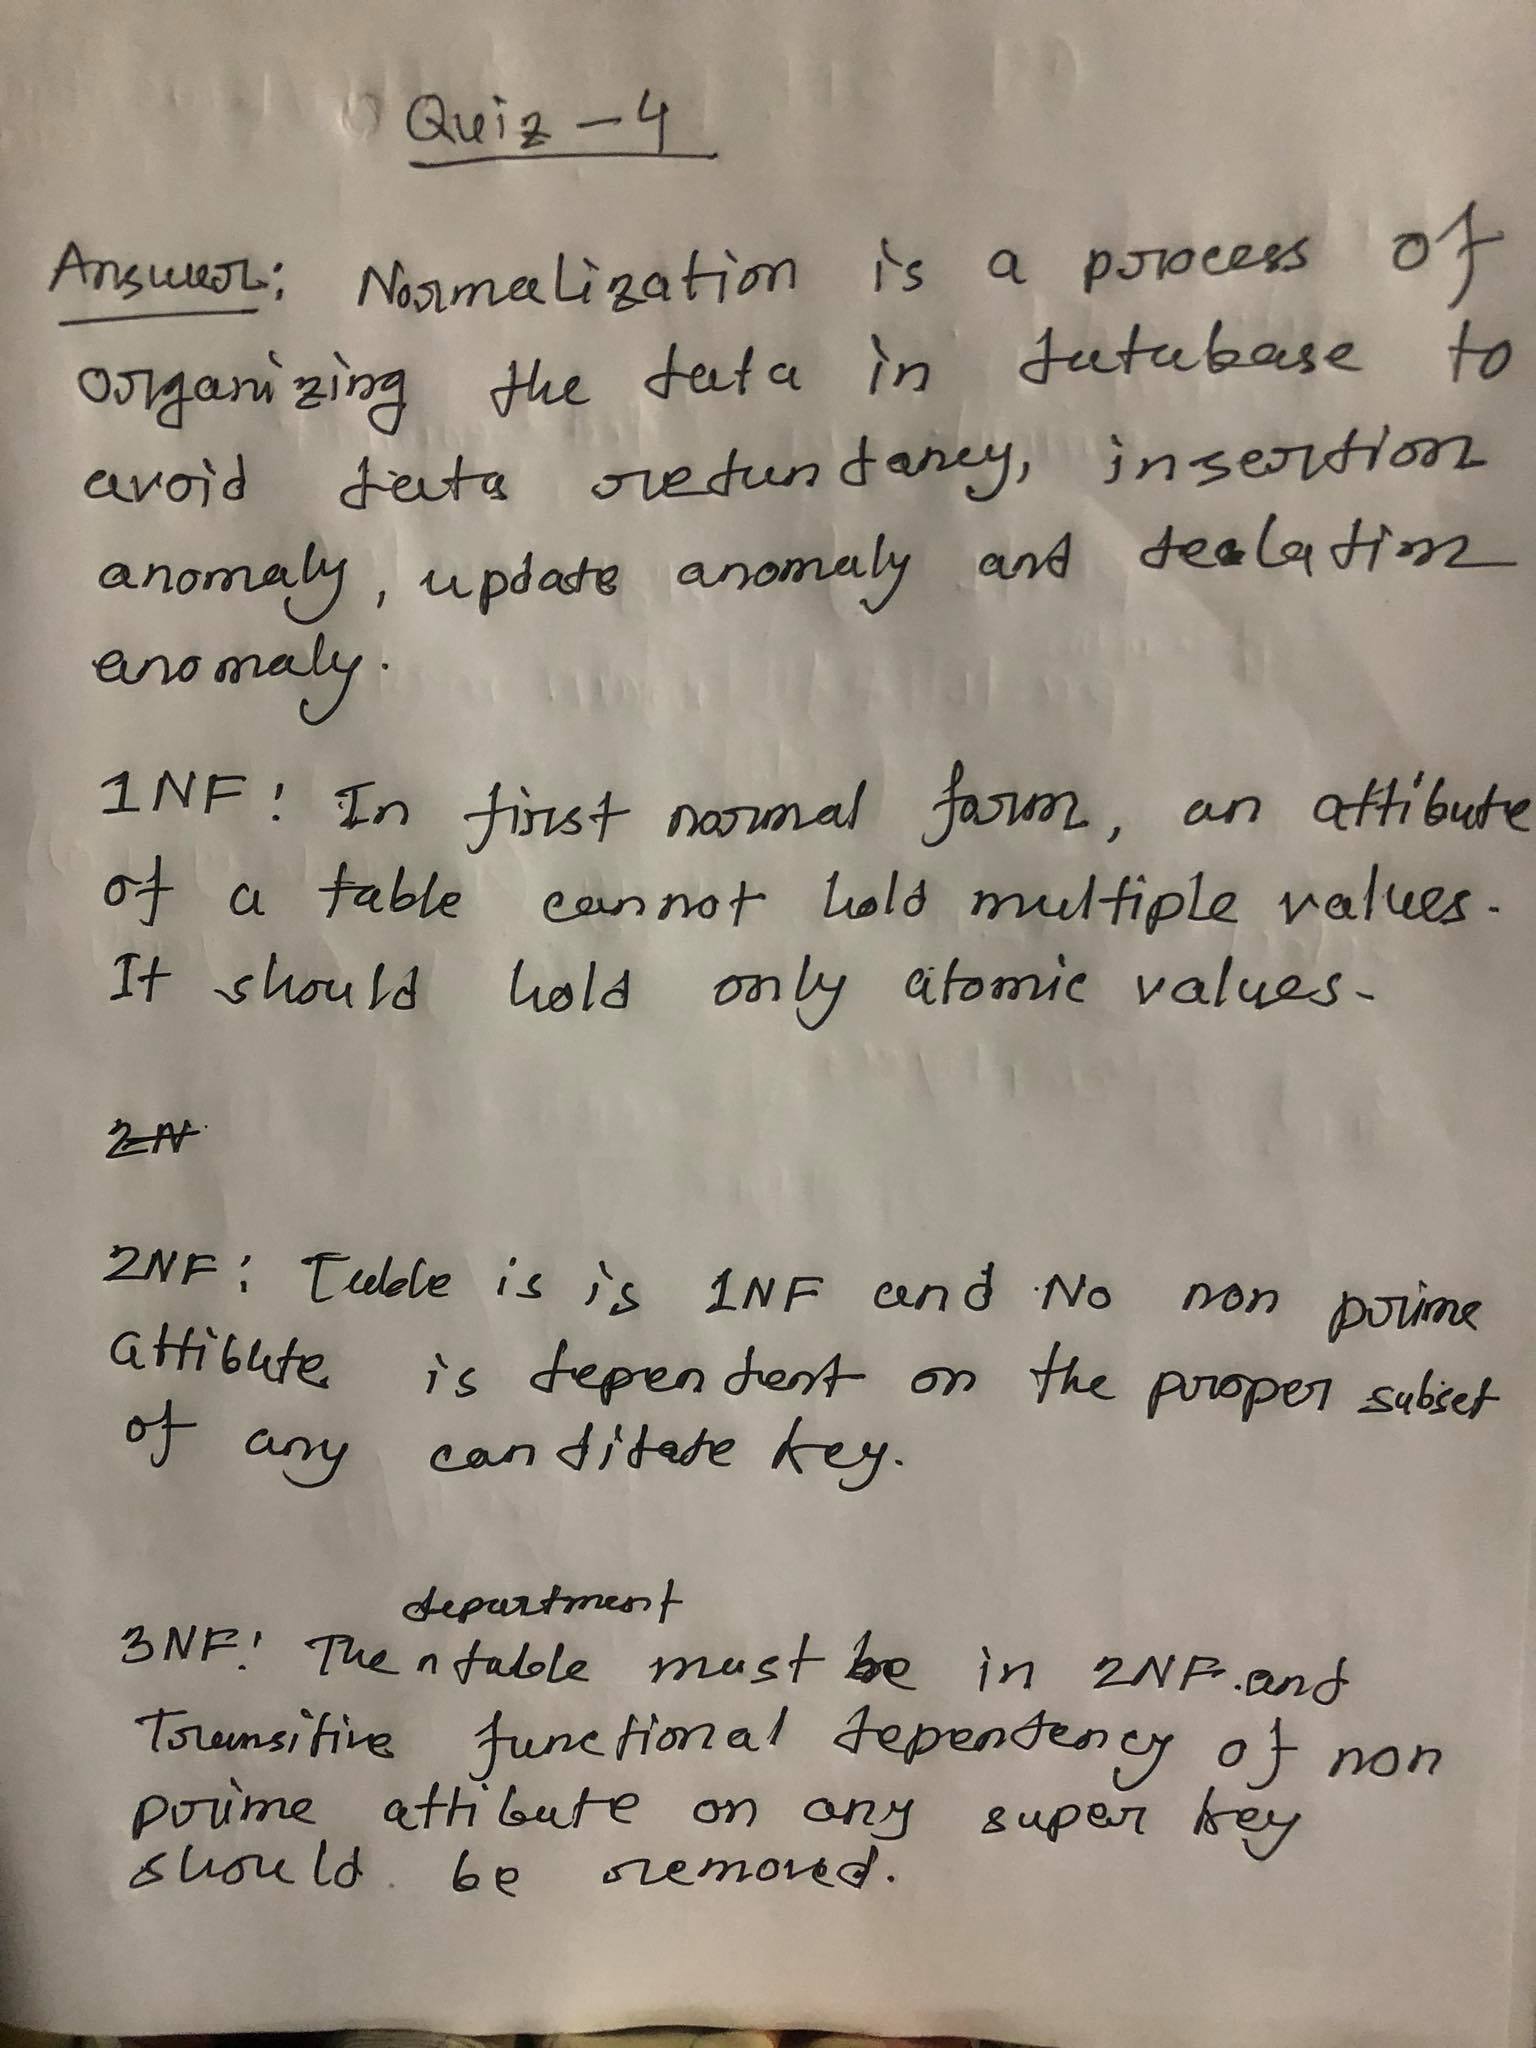 Quiz - 4
Answer: Normalization is a process of
organizing the data in database to
avoid data redundancy, insertion
anomaly, update anomaly and dealation
anomaly.
1NF: In first normal form, an attibute
of a table cannot hold multiple values.
It should hold only atomic values.
2N
2NF: Table is is 1NF and No non prime
attibute is dependent on the proper subset
of any candidate key.
department
3NF: The ^ table must be in 2NF and
Transitive functional dependency of non
prime attibute on any super key
should be removed.